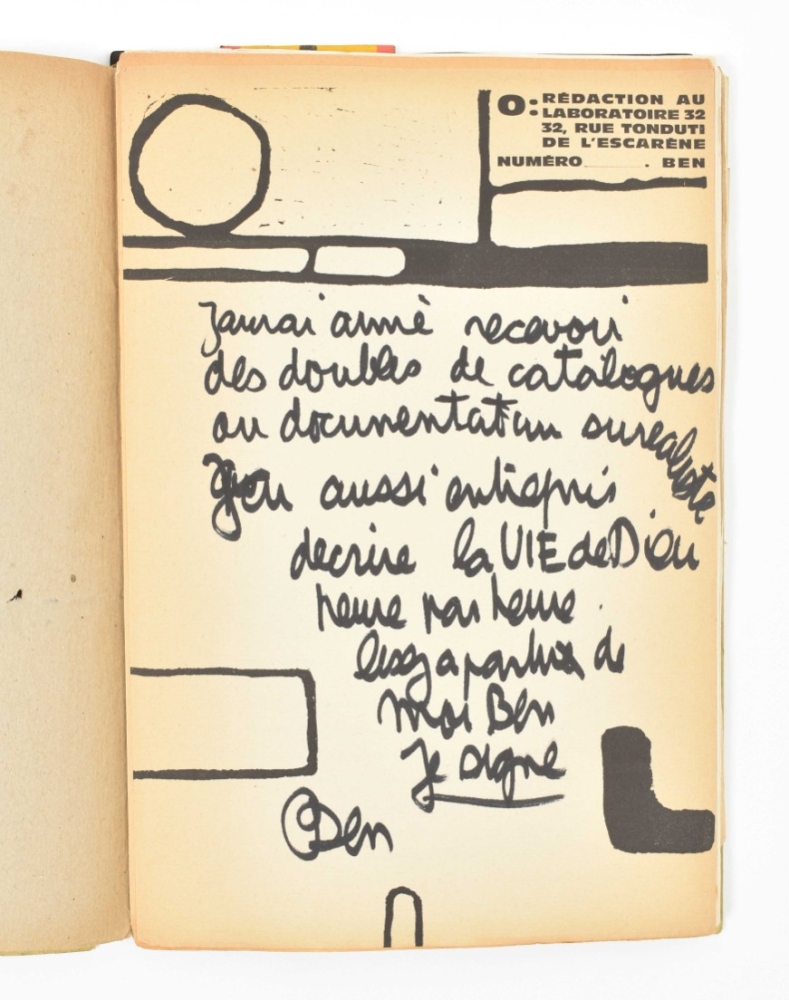 O: RÉDACTION AU
LABORATOIRE 32
32, RUE TONDUTI
DE L'ESCARÈNE
NUMÉRO . BEN
Jaurai aimé recevoir
des doubles de catalogues
ou documentation surealiste
aussi entrepris
decrire la VIE de Dieu
heure par heure
a partir de
moi Ben
Je signe
Ben